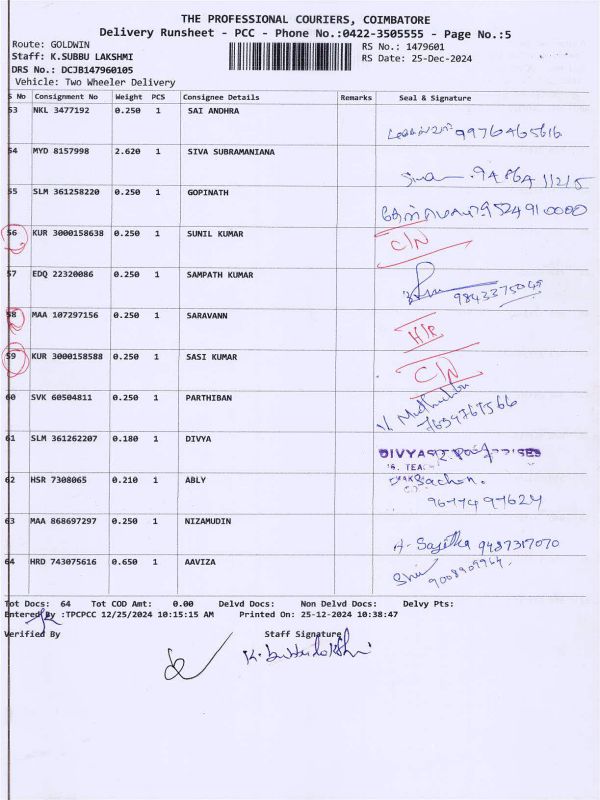 THE PROFESSIONAL COURIERS, COIMBATORE
Delivery Runsheet - PCC - Phone No.:0422-3505555 - Page No.:5
Route: GOLDWIN RS No.: 1479601
Staff: K.SUBBU LAKSHMI RS Date: 25-Dec-2024
DRS No.: DCJB147960105
Vehicle: Two Wheeler Delivery
S No Consignment No Weight PCS Consignee Details Remarks Seal & Signature
53 NKL 3477192 0.250 1 SAI ANDHRA
9976465616
54 MYD 8157998 2.620 1 SIVA SUBRAMANIANA
9486411215
55 SLM 361258220 0.250 1 GOPINATH
9524910000
56 KUR 3000158638 0.250 1 SUNIL KUMAR
C/N
57 EDQ 22320086 0.250 1 SAMPATH KUMAR
58 MAA 107297156 0.250 1 SARAVANN
59 KUR 3000158588 0.250 1 SASI KUMAR
C/N
60 SVK 60504811 0.250 1 PARTHIBAN
61 SLM 361262207 0.180 1 DIVYA
62 HSR 7308065 0.210 1 ABLY
Sachon.
63 MAA 868697297 0.250 1 NIZAMUDIN
9487317070
64 HRD 743075616 0.650 1 AAVIZA
Tot Docs: 64 Tot COD Amt: 0.00 Delvd Docs: Non Delvd Docs: Delvy Pts:
Entered By :TPCPCC 12/25/2024 10:15:15 AM Printed On: 25-12-2024 10:38:47
Verified By Staff Signature